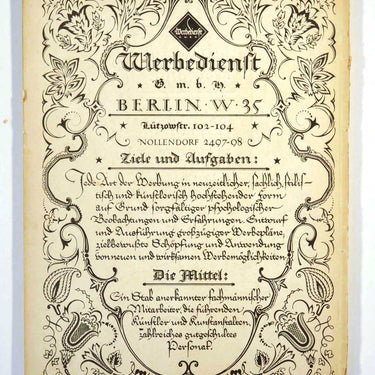 Werbedienst
Werbedienst
G. m. b. H.
BERLIN·W·35
Lützowstr. 102-104
NOLLENDORF 2497-98
Ziele und Aufgaben:
Jede Art der Werbung in neuzeitlicher, sachlich, stilis-
tisch und künstlerisch hochstehender Form
auf Grund sorgfältiger psychologischer
Beobachtungen und Erfahrungen. Entwurf
und Ausführung großzügiger Werbepläne,
zielbewußte Schöpfung und Anwendung
von neuen und wirksamen Werbemöglichkeiten
Die Mittel:
Ein Stab anerkannter fachmännischer
Mitarbeiter, die führenden
Künstler und Kunstanstalten,
zahlreiches gutgeschultes
Personal.